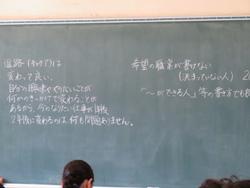 進路(キャリア)は
変わって良い。
自分の興味ややりたいことが
何かのきっかけで変わることが
あるから、今のなりたい仕事が
2年後に変わるのは何も問題ありません。
希望の職業が書けない
(決まっていない人)
「〜ができる人」等の書き方でも